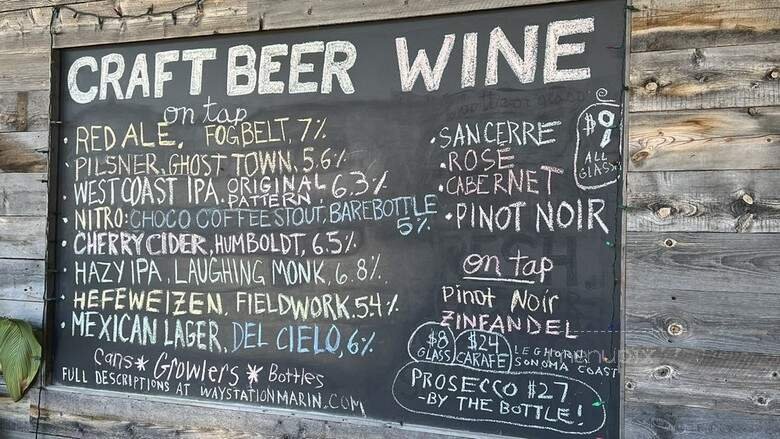 CRAFT BEER
on tap
• RED ALE, FOGBELT, 7%
• PILSNER, GHOST TOWN, 5.6%
• WEST COAST IPA, ORIGINAL PATTERN, 6.3%
• NITRO: CHOCO COFFEE STOUT, BAREBOTTLE 5%
• CHERRY CIDER, HUMBOLDT, 6.5%
• HAZY IPA, LAUGHING MONK, 6.8%
• HEFEWEIZEN, FIELDWORK 5.4%
• MEXICAN LAGER, DEL CIELO, 6%
Cans * Growlers * Bottles
FULL DESCRIPTIONS AT WAYSTATIONMARIN.COM
WINE
• SANCERRE
• ROSÉ
• CABERNET
• PINOT NOIR
$9
ALL
GLASS
on tap
Pinot Noir
ZINFANDEL
$8
GLASS
$24
CARAFE
SONOMA COAST
PROSECCO $27
-BY THE BOTTLE!